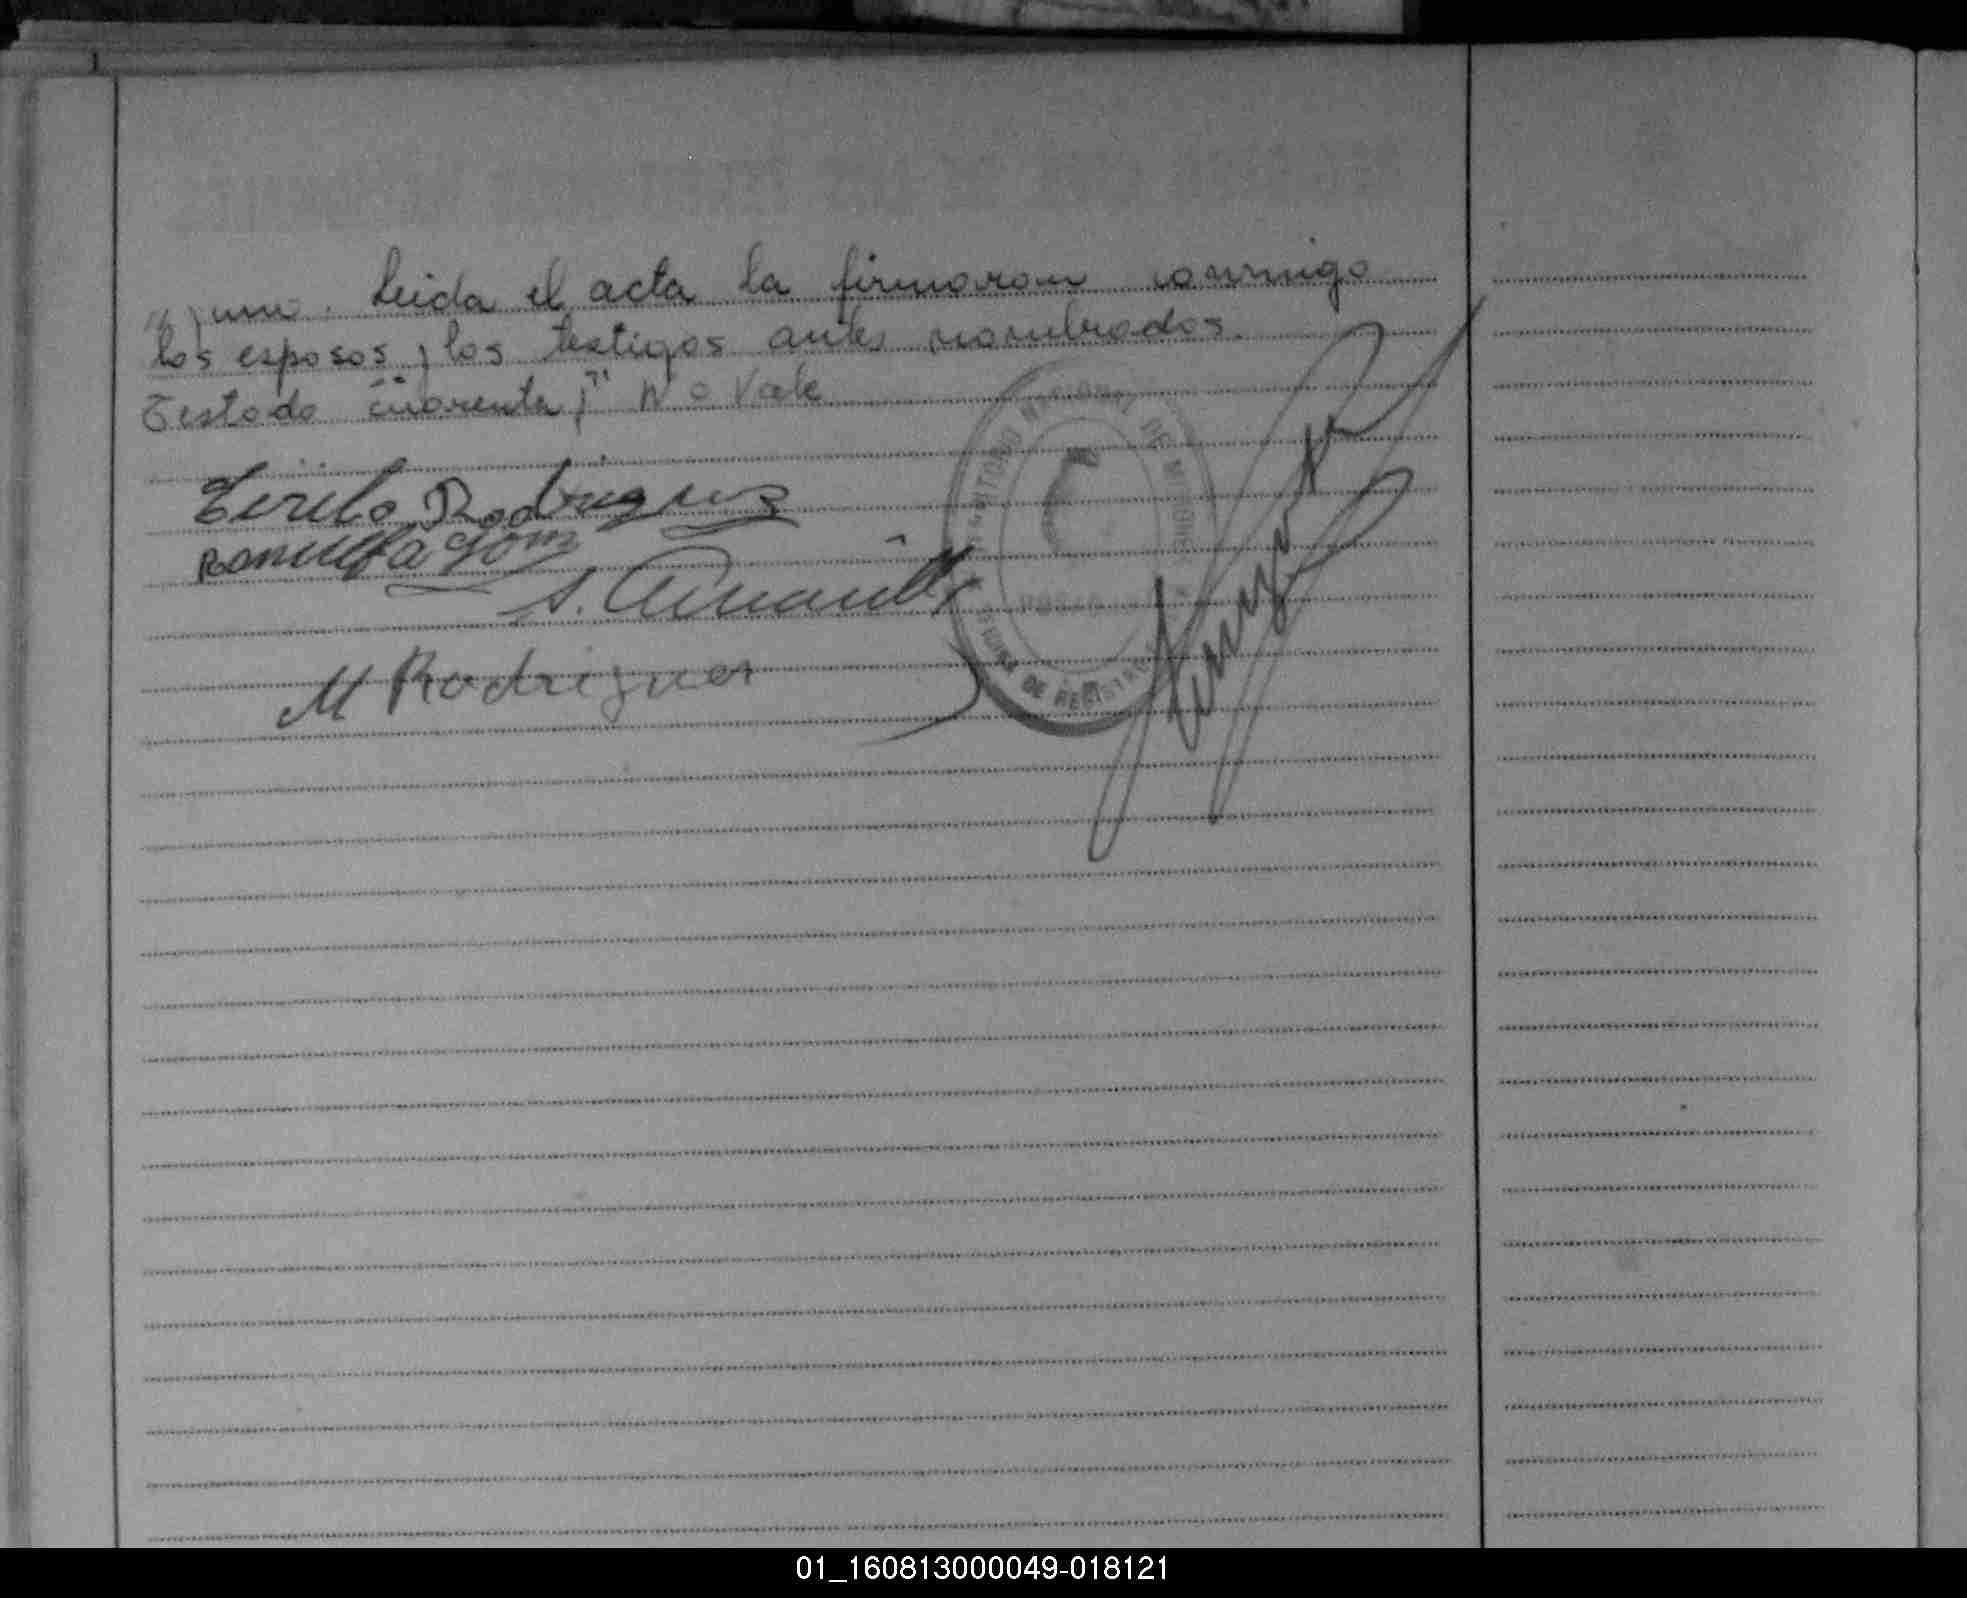 y uno. Leida el acta la firmaron conmigo
los esposos y los testigos antes nombrados.
Testado "cuarenta y" No Vale
Rodriguez
TERRITORIO NACIONAL DE MISIONES
POSADAS
DE REGISTRO
M Rodriguez
01_160813000049-018121